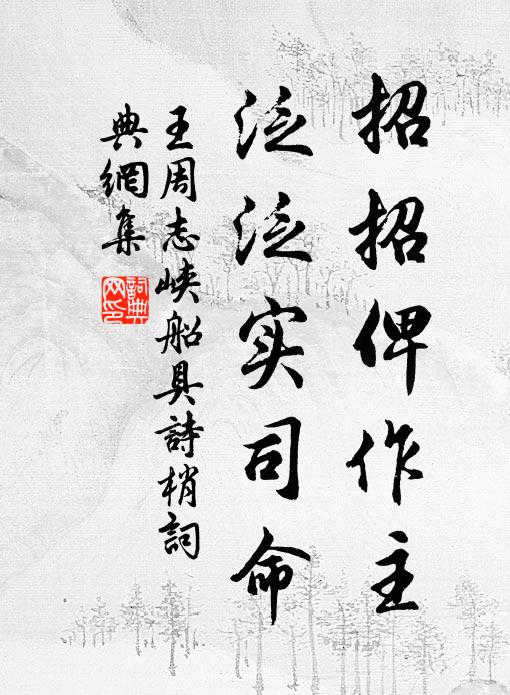 招招俾作主
泛泛实司命
王周志峡船具詩梢詞
典網集
詞典网印